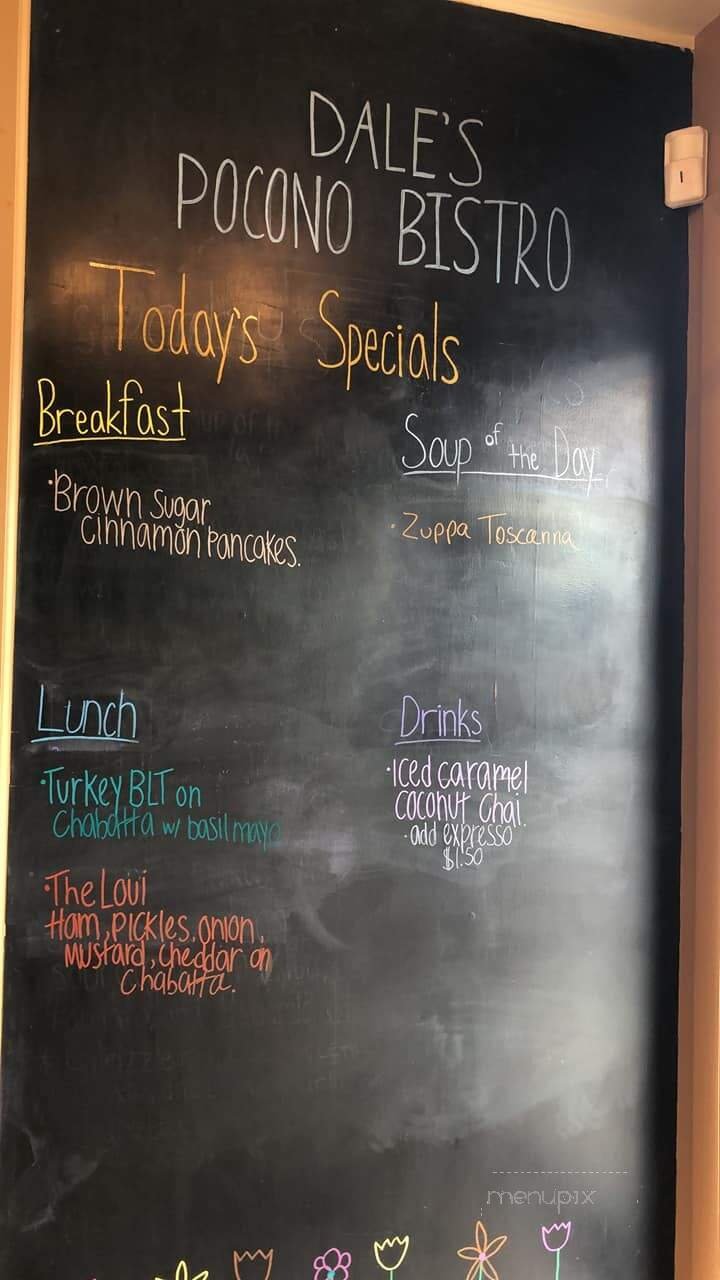 DALE'S
POCONO BISTRO
Today's Specials
Breakfast
·Brown Sugar
Cinnamon Pancakes.
Soup of the Day
·Zuppa Toscanna
Lunch
·Turkey BLT on
Chabatta w/ basil mayo
·The Loui
Ham, Pickles, onion,
Mustard, Cheddar on
Chabatta.
Drinks
·Iced caramel
coconut Chai
·add expresso
$1.50
menupix